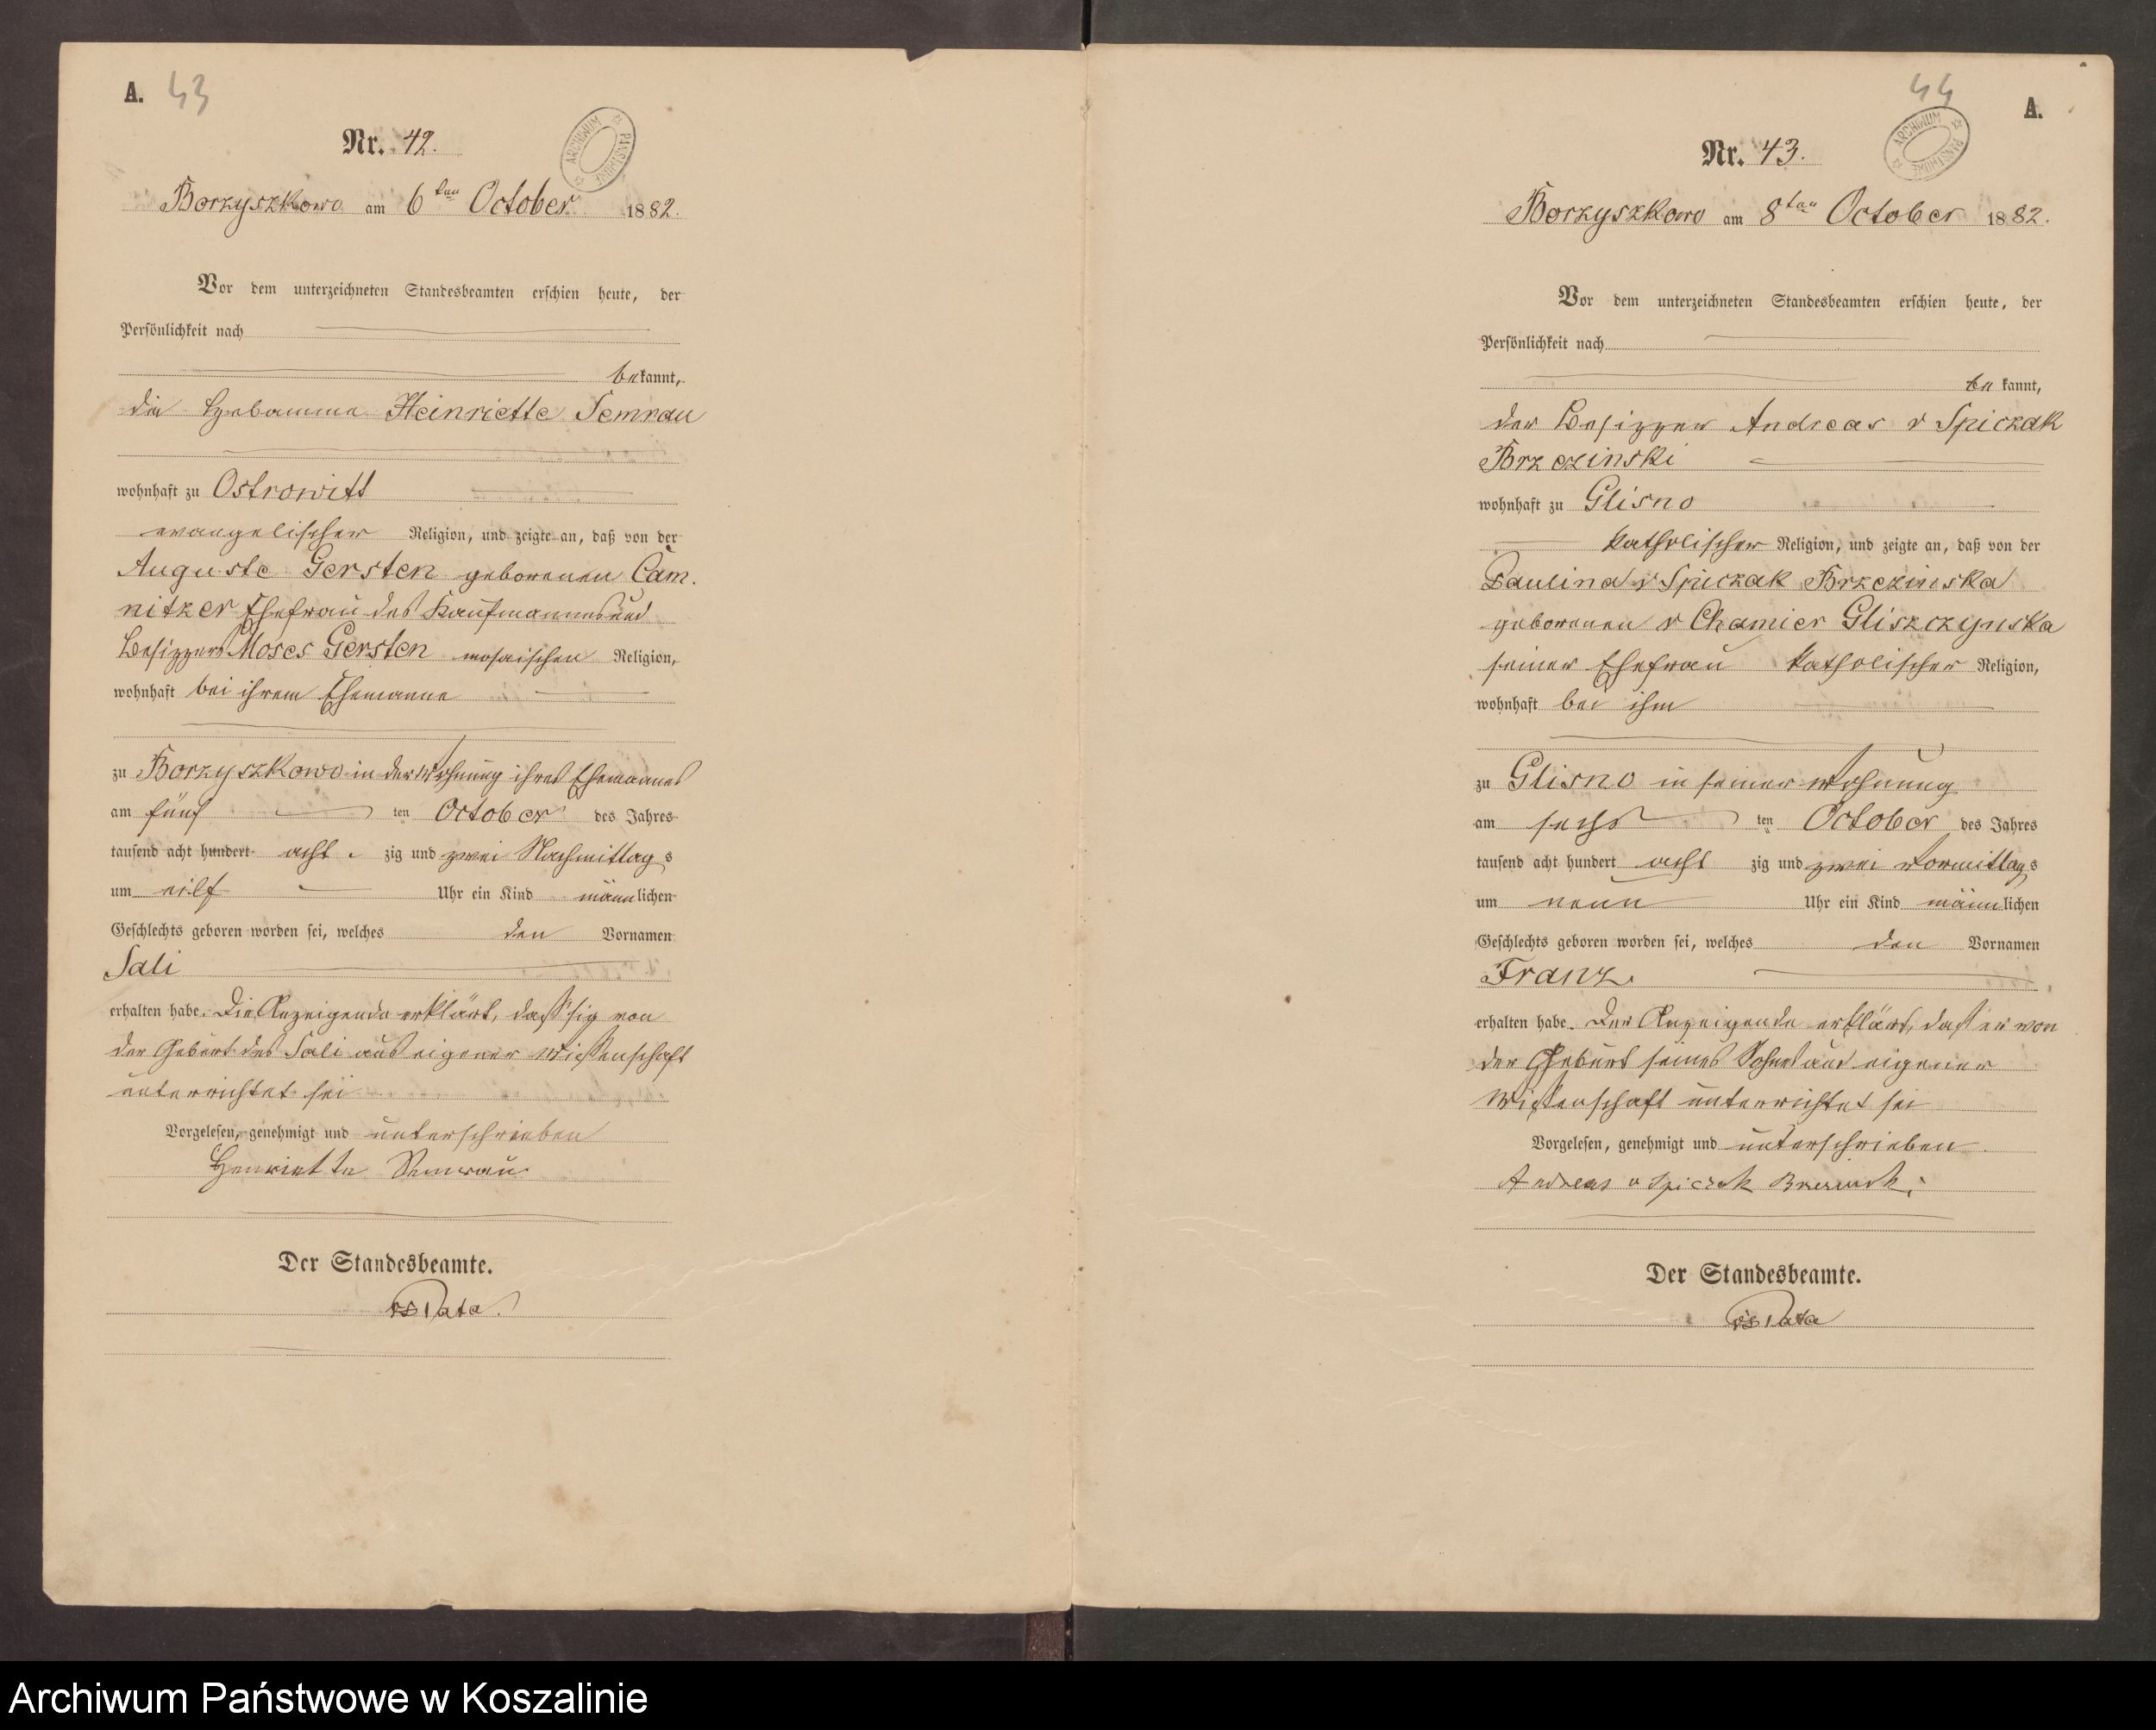 A. 43
Nr. 42.
ARCHIWUM PAŃSTWOWE
Borzyszkowo am 6ten October 1882.
Vor dem unterzeichneten Standesbeamten erschien heute, der
Persönlichkeit nach
bekannt,
die Hebamme Heinriette Semrau
wohnhaft zu Ostrowitt
evangelischer Religion, und zeigte an, daß von der
Auguste Gersten geborenen Cam.
nitzer Ehefrau des Kaufmannes und
Besitzers Moses Gersten mosaischen Religion,
wohnhaft bei ihrem Ehemanne
zu Borzyszkowo in der Wohnung ihres Ehemannes
am fünf ten October des Jahres
tausend acht hundert acht zig und zwei Nachmittags
um eilf Uhr ein Kind männlichen
Geschlechts geboren worden sei, welches den Vornamen
Sali
erhalten habe. Die Anzeigende erklärt, daß sie von
der Geburt des Sali aus eigener Wissenschaft
unterrichtet sei
Vorgelesen, genehmigt und unterschrieben
Henriette Semrau
Der Standesbeamte.
44 A.
Nr. 43.
ARCHIWUM PAŃSTWOWE
Borzyszkowo am 8ten October 1882.
Vor dem unterzeichneten Standesbeamten erschien heute, der
Persönlichkeit nach
be kannt,
der Besitzer Andreas v Spiczak
Brzezinski
wohnhaft zu Glisno
katholischer Religion, und zeigte an, daß von der
Paulina v Spiczak Brzezinska
geborenen v Chamier Gliszczynska
seiner Ehefrau katholischer Religion,
wohnhaft bei ihm
zu Glisno in seiner Wohnung
am sechs ten October des Jahres
tausend acht hundert acht zig und zwei Vormittags
um neun Uhr ein Kind männlichen
Geschlechts geboren worden sei, welches den Vornamen
Franz.
erhalten habe. Der Anzeigende erklärt, daß er von
der Geburt seines Sohnes aus eigener
Wissenschaft unterrichtet sei
Vorgelesen, genehmigt und unterschrieben
Andreas v Spiczak Brzezinski
Der Standesbeamte.
Archiwum Państwowe w Koszalinie